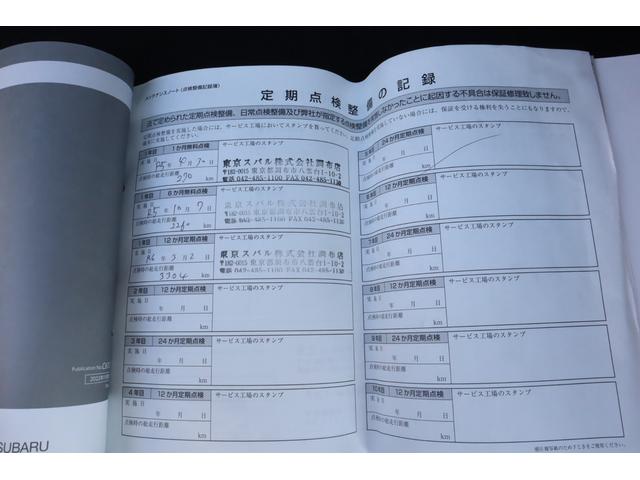 メンテナンスノート(点検整備記録簿)
定期点検整備の記録
法で定められた定期点検整備、日常点検整備及び弊社が指定する点検整備を実施しなかったことに起因する不具合は保証修理致しません。
1か月無料点検
サービス工場のスタンプ
実施日
R5年4月30日
点検時の総走行距離
270 km
東京スバル株式会社調布店
〒182-0015 東京都調布市八雲台1-10-2
TEL 042-485-1100 FAX 042-485-1130
6か月無料点検
サービス工場のスタンプ
実施日
R5年10月7日
点検時の総走行距離
km
東京スバル株式会社調布店
〒182-0015 東京都調布市八雲台1-10-2
TEL 042-485-1100 FAX 042-485-1130
1年目 12か月定期点検
サービス工場のスタンプ
実施日
R6年3月2日
点検時の総走行距離
3304 km
東京スバル株式会社調布店
〒182-0015 東京都調布市八雲台1-10-2
TEL 042-485-1100 FAX 042-485-1130
2年目 24か月定期点検
サービス工場のスタンプ
実施日
年 月 日
点検時の総走行距離
km
3年目 24か月定期点検
サービス工場のスタンプ
実施日
年 月 日
点検時の総走行距離
km
4年目 12か月定期点検
サービス工場のスタンプ
実施日
年 月 日
点検時の総走行距離
km
24か月定期点検
サービス工場のスタンプ
年 月 日
km
12か月定期点検
サービス工場のスタンプ
年 月 日
点検時の総走行距離
km
7年目 24か月定期点検
サービス工場のスタンプ
年 月 日
点検時の総走行距離
km
8年目 12か月定期点検
サービス工場のスタンプ
年 月 日
点検時の総走行距離
km
9年目 24か月定期点検
サービス工場のスタンプ
年 月 日
点検時の総走行距離
km
10年目 12か月定期点検
サービス工場のスタンプ
年 月 日
点検時の総走行距離
km
SUBARU